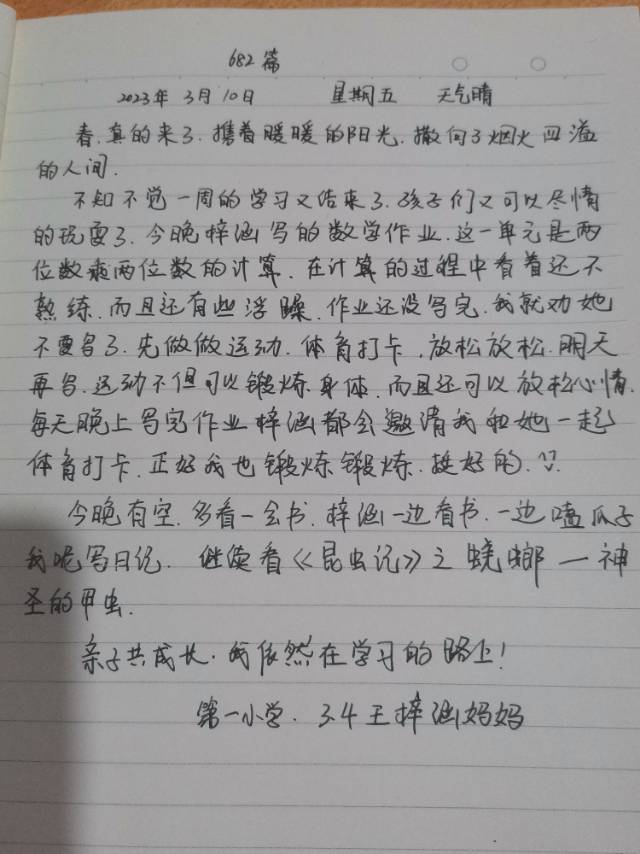 682篇
2023年 3月10日 星期五 天气晴
春.真的来了.携着暖暖的阳光.撒向了烟火四溢
的人间.
不知不觉一周的学习又结束了.孩子们又可以尽情
的玩耍了.今晚梓涵写的数学作业.这一单元是两
位数乘两位数的计算.在计算的过程中看着还不
熟练.而且还有些浮躁.作业还没写完.我就劝她
不要写了.先做做运动.体育打卡.放松放松.明天
再写.运动不但可以锻炼身体.而且还可以放松心情.
每天晚上写完作业梓涵都会邀请我和她一起
体育打卡.正好我也锻炼锻炼.挺好的.
今晚有空.多看一会书.梓涵一边看书.一边嗑瓜子
我呢写日记.继续看《昆虫记》之蜣螂一神
圣的甲虫.
亲子共成长.我依然在学习的路上!
第一小学.3.4王梓涵妈妈